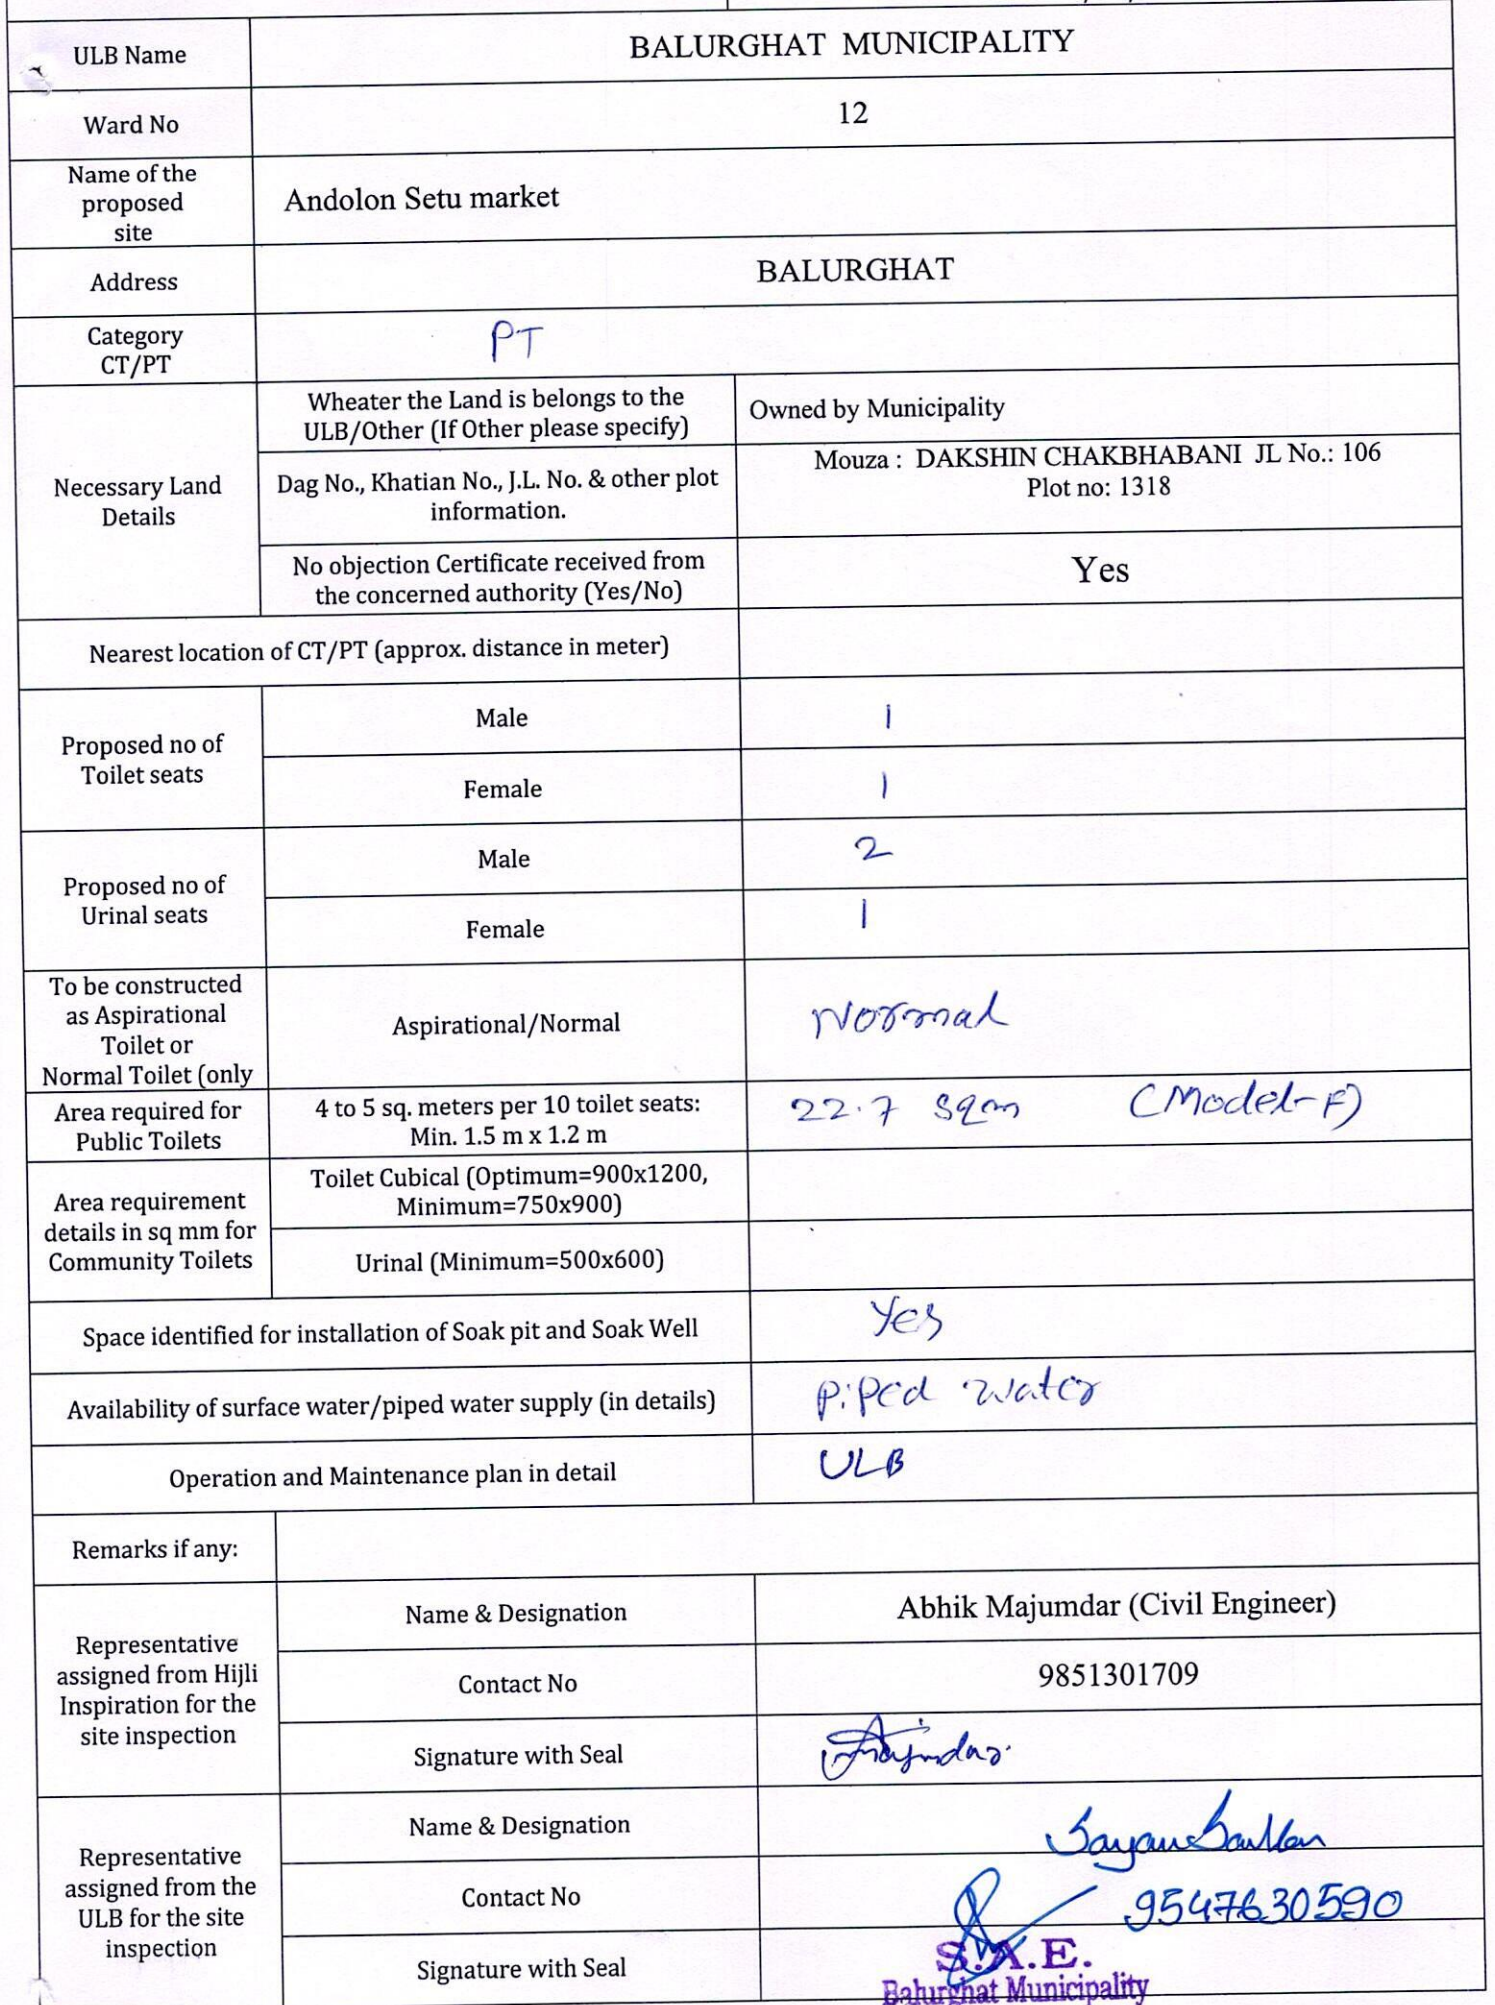 ULB Name
BALURGHAT MUNICIPALITY
Ward No
12
Name of the
proposed
site
Andolon Setu market
Address
BALURGHAT
Category
CT/PT
PT
Necessary Land
Details
Wheater the Land is belongs to the
ULB/Other (If Other please specify)
Owned by Municipality
Dag No., Khatian No., J.L. No. & other plot
information.
Mouza : DAKSHIN CHAKBHABANI JL No.: 106
Plot no: 1318
No objection Certificate received from
the concerned authority (Yes/No)
Yes
Nearest location of CT/PT (approx. distance in meter)
Proposed no of
Toilet seats
Male
1
Female
1
Proposed no of
Urinal seats
Male
2
Female
1
To be constructed
as Aspirational
Toilet or
Normal Toilet (only
Aspirational/Normal
Normal
Area required for
Public Toilets
4 to 5 sq. meters per 10 toilet seats:
Min. 1.5 m x 1.2 m
22.7 sqm (Model-F)
Area requirement
details in sq mm for
Community Toilets
Toilet Cubical (Optimum=900x1200,
Minimum=750x900)
Urinal (Minimum=500x600)
Space identified for installation of Soak pit and Soak Well
Yes
Availability of surface water/piped water supply (in details)
Piped water
Operation and Maintenance plan in detail
ULB
Remarks if any:
Representative
assigned from Hijli
Inspiration for the
site inspection
Name & Designation
Abhik Majumdar (Civil Engineer)
Contact No
9851301709
Signature with Seal
Representative
assigned from the
ULB for the site
inspection
Name & Designation
Sayan
Contact No
9547630590
Signature with Seal
S.A.E.
Balurghat Municipality